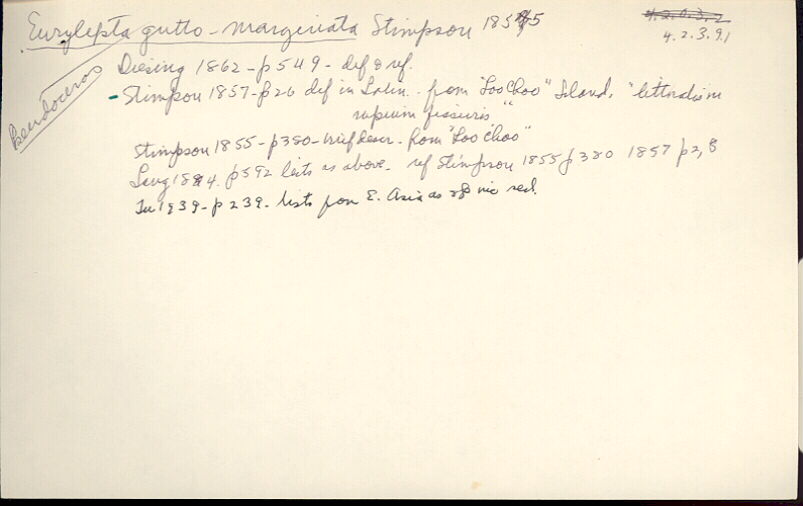 Eurylepta gutto-marginata Stimpson 1855
4.2.0.3.2
4.2.3.9.1
Pseudoceros
Diesing 1862 - p 549 - def & ref.
- Stimpson 1857 - p 26 def in Latin. from "Loo Choo" Island, "littoralis in
rupium fissuris"
Stimpson 1855 - p 380 - brief descr. from "Loo Choo"
Lang 1884. p 592 lists as above. ref Stimpson 1855 p 380 1857 p 2, 8
1939 - p 239 - lists from E. Asia as